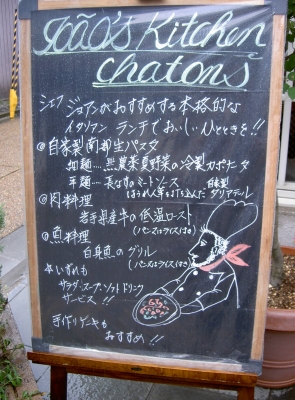 João's Kitchen
chatons
シェフ ジョアンがおすすめする本格的な
イタリアン ランチでおいしいひとときを!!
◎自家製南部生パスタ
細麺‥‥無農薬夏野菜の冷製カポナータ
平麺‥‥長なすのミートソース
ほうれん草を打ち込んだ 自家製タリアテーレ
◎肉料理
岩手県産牛の低温ロースト
(パン又はライス付き)
◎魚料理
白身魚のグリル
(パン又はライス付き)
☆いずれも
サラダ、スープ、ソフトドリンク
サービス!!
手作りケーキも
おすすめ!!